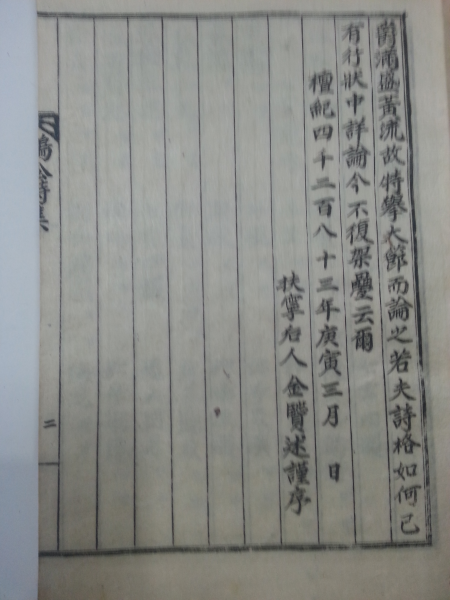 貲滿盛黃流故特擧大節而論之若夫詩格如何已
有行狀中詳論今不復架疊云爾
檀紀四千二百八十三年庚寅三月 日
扶寧后人金贒述謹序
詩集
二